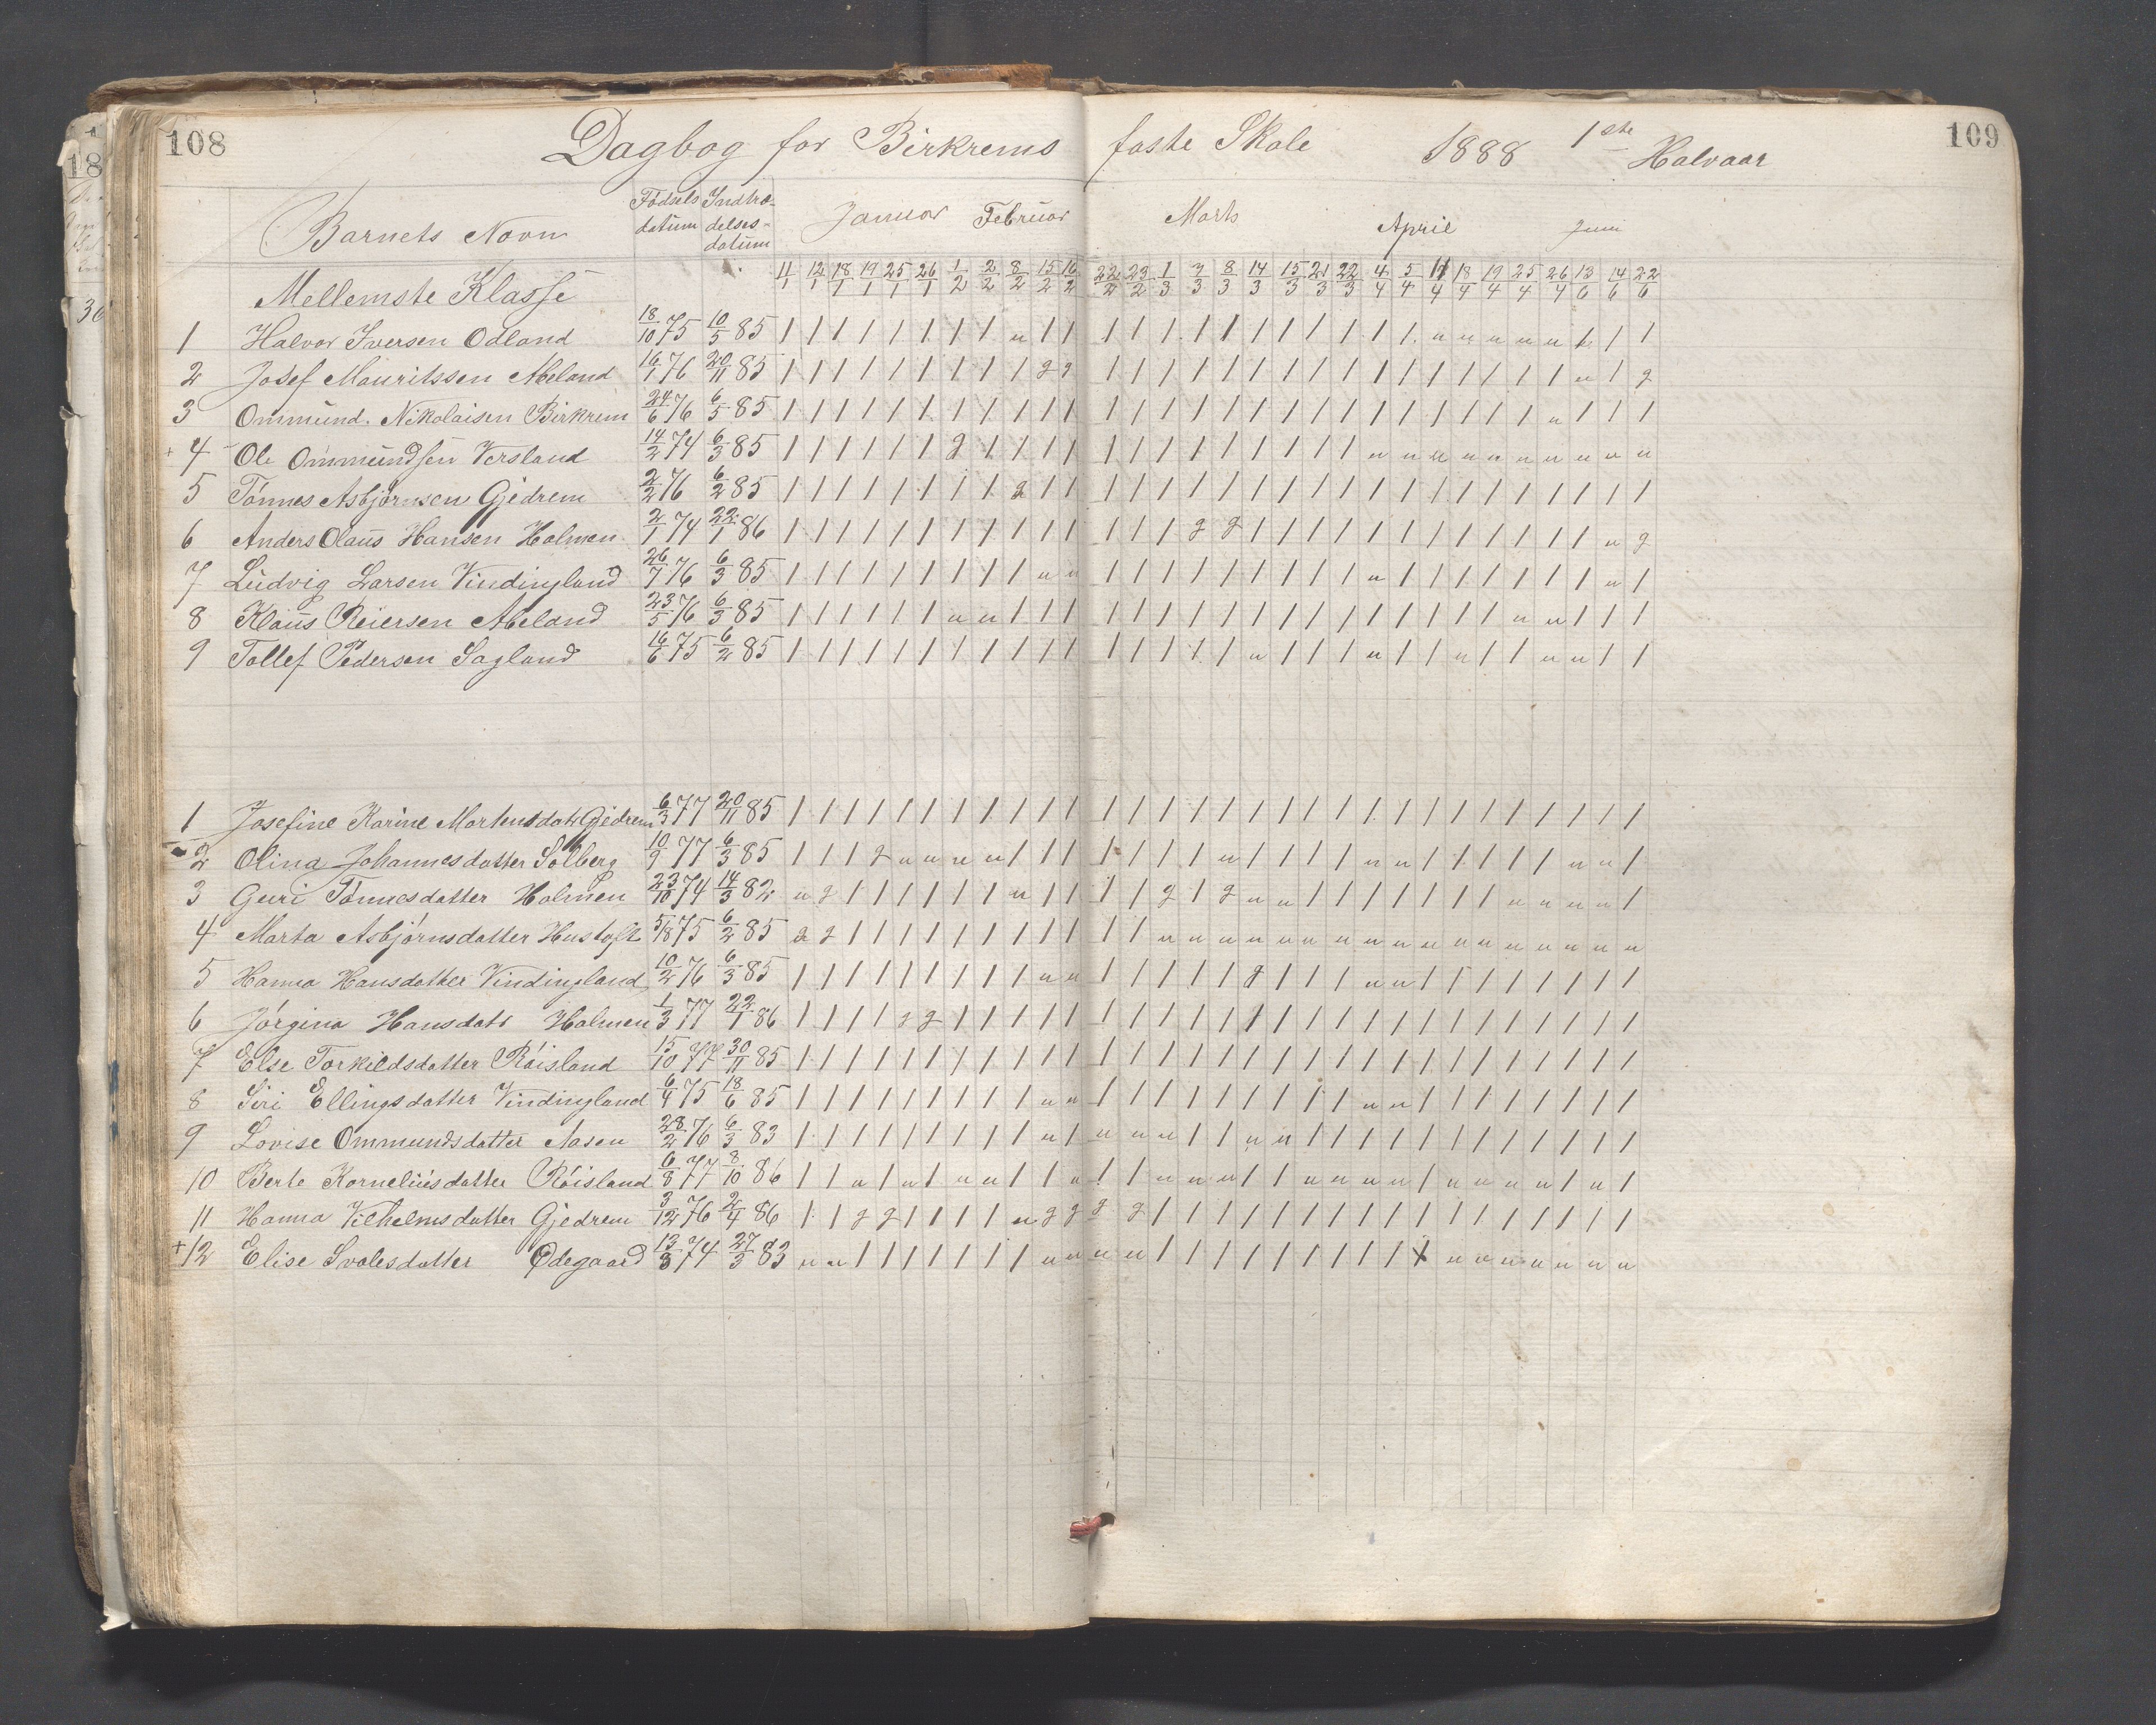 108 Dagbog for Birkrems faste Skole 1888 1ste Halvaar 109
Barnets Navn Fødsels datum Indtrædelses-datum Januar Februar Marts April Juni
11/1 12/1 18/1 19/1 25/1 26/1 1/2 2/2 8/2 15/2 16/2 22/2 23/2 1/3 7/3 8/3 14/3 15/3 21/3 22/3 4/4 5/4 11/4 18/4 19/4 25/4 26/4 13/6 14/6 22/6
Mellemste Klasse
1 Halvor Iversen Odland 18/10 75 10/5 85
2 Josef Mauritssen Abeland 16/1 76 20/11 85
3 Ommund Nikolaisen Birkrem 24/6 76 6/5 85
+ 4 Ole Ommundsen Versland 14/2 74 6/3 85
5 Tønnes Asbjørnsen Gjedrem 2/2 76 6/2 85
6 Anders Olaus Hansen Holmen 2/1 74 22/1 86
7 Ludvig Larsen Vindingland 26/7 76 6/3 85
8 Klaus Reiersen Abeland 23/5 76 6/3 85
9 Tollef Pedersen Sagland 16/6 75 6/2 85
1 Josefine Karine Mortensdatr Gjedrem 6/3 77 20/11 85
2 Olina Johannesdatter Solberg 10/9 77 6/3 85
3 Guri Tønnesdatter Holmen 23/10 74 14/3 82
4 Marta Asbjørnsdatter Hustoft 5/8 75 6/2 85
5 Hanna Hansdatter Vindingland 10/2 76 6/3 85
6 Jørgina Hansdatr Holmen 1/3 77 22/1 86
7 Else Torkildsdatter Røisland 15/10 77 30/11 85
8 Siri Ellingsdatter Vindingland 6/4 75 18/6 85
9 Lovise Ommundsdatter Aasen 28/2 76 6/3 83
10 Berte Korneliusdatter Røisland 6/8 77 8/10 86
11 Hanna Vilhelmsdatter Gjedrem 3/12 76 2/4 86
+ 12 Elise Svalesdatter Ødegaard 13/8 74 27/3 83